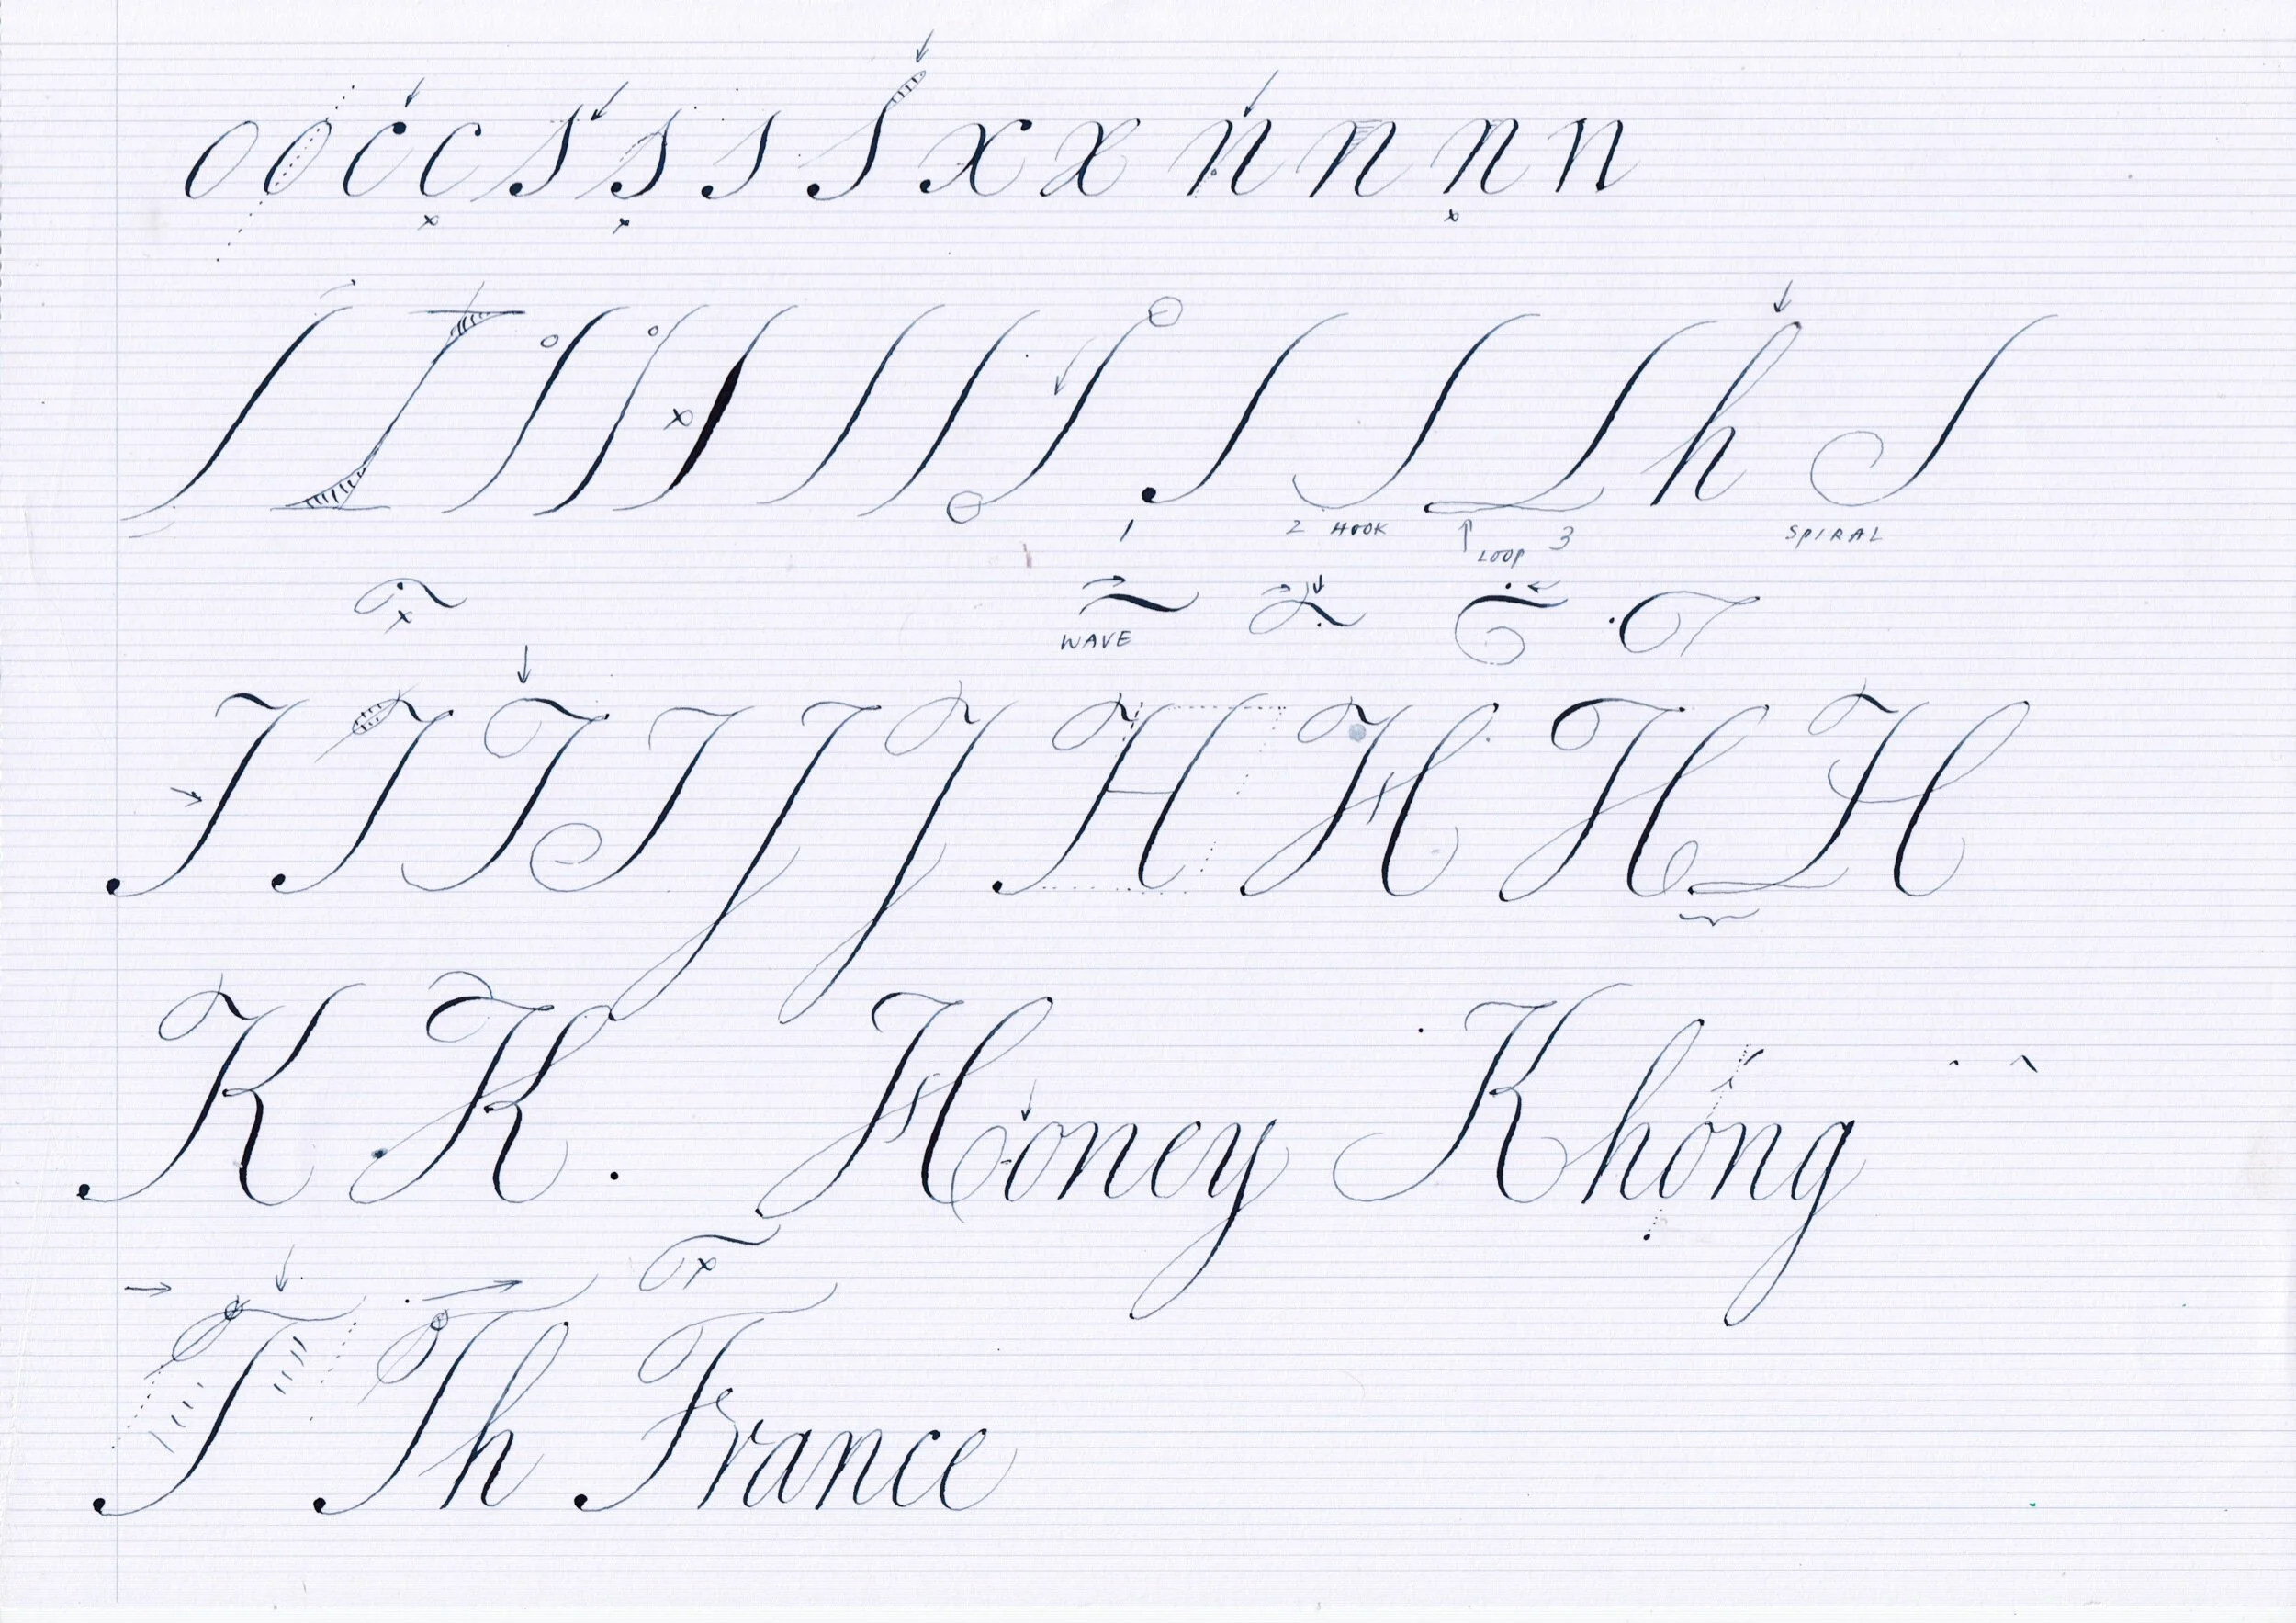 o o c c s s s s x x n n n n
h
1 2 HOOK LOOP 3 SPIRAL
WAVE
I I I I J J H H H H
K K. Honey Không
T Th France